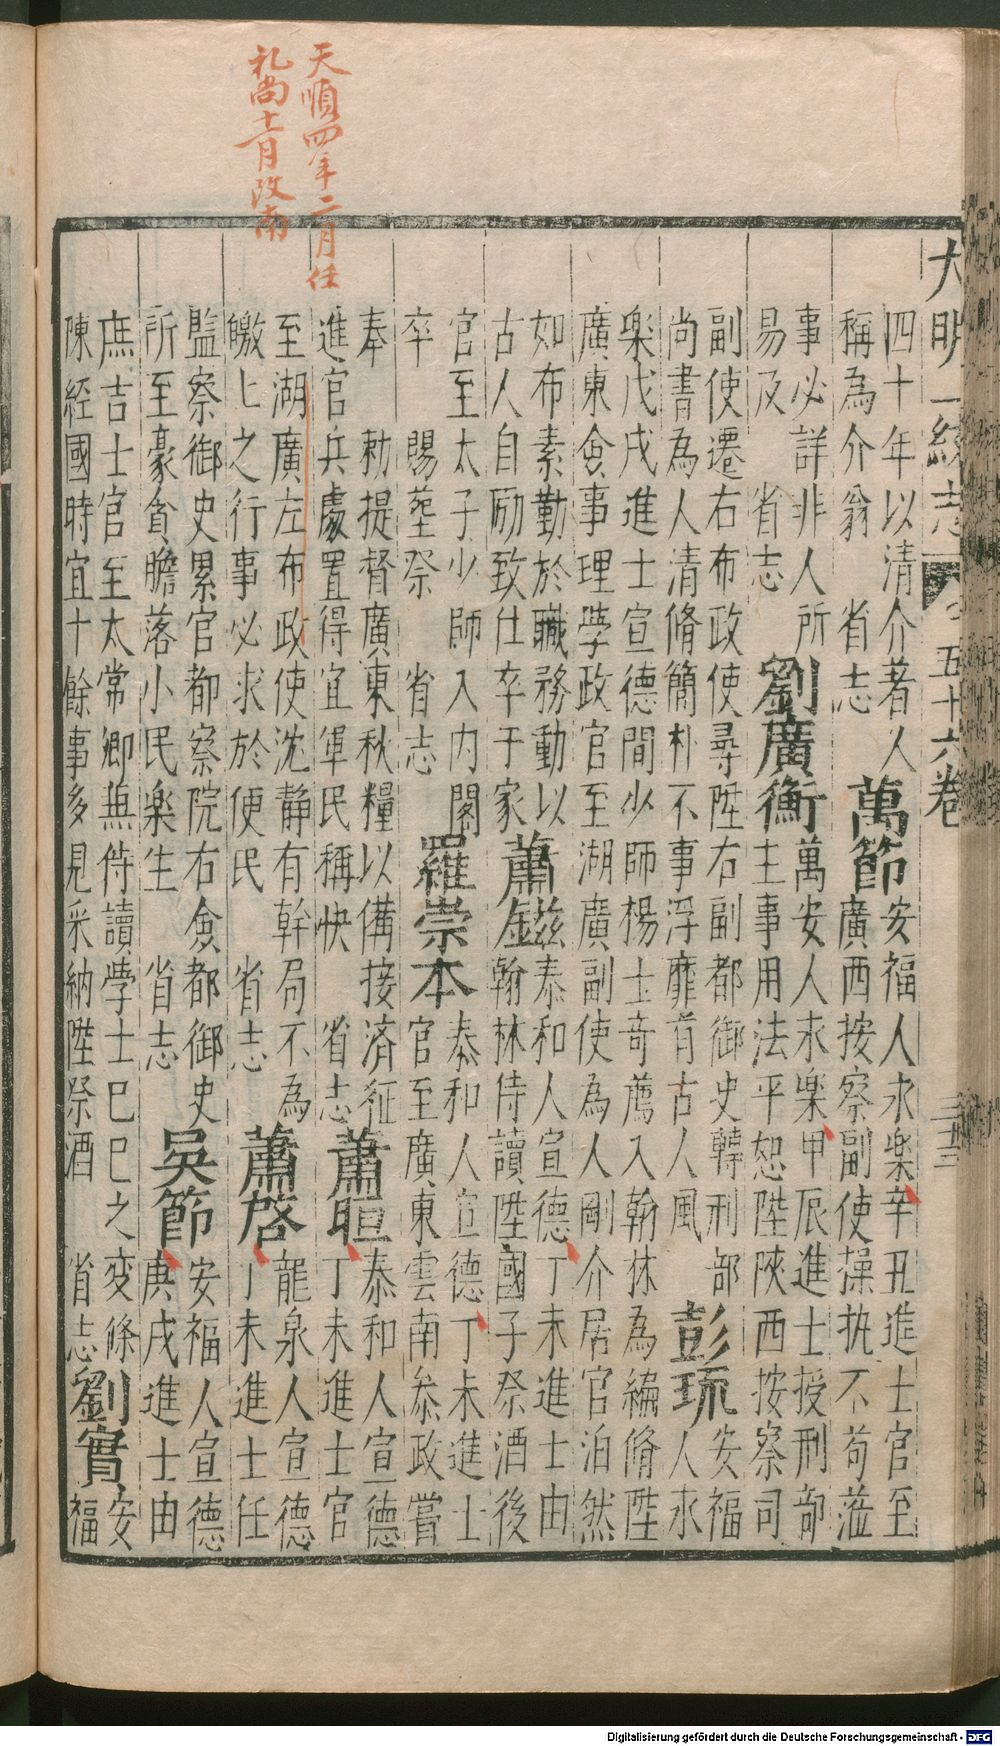 天順四年二月任
礼尚十一月改南
大明一統志 五十六卷
四十年以清介著人
稱為介翁 省志
萬節
安福人永樂辛丑進士官至
廣西按察副使操执不苟蒞
事必詳非人所
易及 省志
劉廣衡
萬安人永樂甲辰進士授刑部
主事用法平恕陞陝西按察司
副使遷右布政使尋陞右副都御史轉刑部
尚書為人清脩簡朴不事浮靡有古人風
彭琉
安福
人永
樂戊戌進士宣德間少師楊士竒薦入翰林為編脩陞
廣東僉事理學政官至湖廣副使為人剛介居官泊然
如布素勤於職務動以
古人自励致仕卒于家
蕭鎡
泰和人宣德丁未進士由
翰林侍讀陞國子祭酒後
官至太子少師入内閣
卒 賜塋祭 省志
羅崇本
泰和人宣德丁未進士
官至廣東雲南叅政嘗
奉 勅提督廣東秋糧以備接済征
進官兵處置得宜軍民稱快 省志
蕭晅
泰和人宣德
丁未進士官
至湖廣左布政使沈静有幹局不為
皦匕之行事必求於便民 省志
蕭啓
龍泉人宣德
丁未進士任
監察御史累官都察院右僉都御史
所至豪貪膽落小民楽生 省志
吳節
安福人宣德
庚戌進士由
庶吉士官至太常卿無侍讀學士巳巳之变條
陳經國時宜十餘事多見采納陞祭酒 省志
劉實
安
福
Digitalisierung gefördert durch die Deutsche Forschungsgemeinschaft - DFG